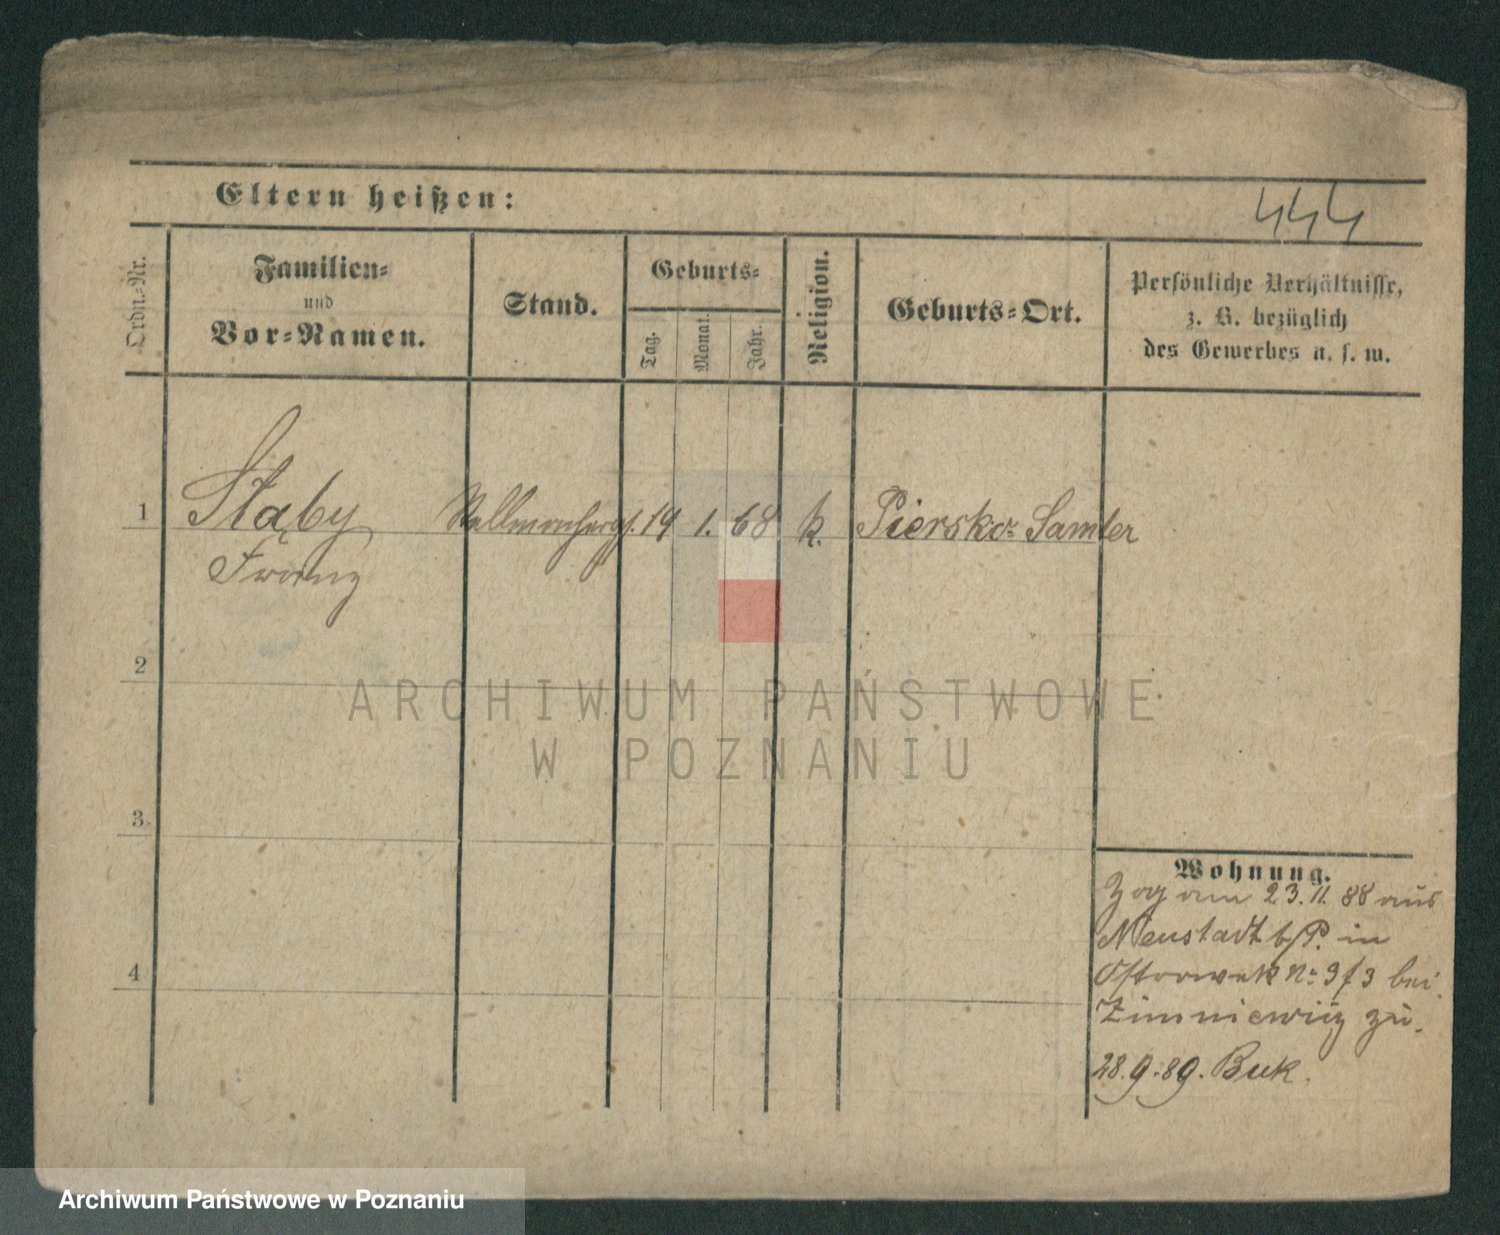 Eltern heißen:
444
Ordn.-Nr.
Familien-
und
Vor-Namen.
Stand.
Geburts-
Tag.
Monat.
Jahr.
Religion.
Geburts-Ort.
Persönliche Verhältnisse,
z. B. bezüglich
des Gewerbes u. s. w.
1 Staby Stellmachergs. 19 1. 68 k. Piersko- Samter
Franz
2
3.
4
Wohnung.
Zog am 23.11.88 aus
Neustadt b/P. in
No 3/3 bei
zu.
28.9.89. Buk.
ARCHIWUM PAŃSTWOWE
W POZNANIU
Archiwum Państwowe w Poznaniu